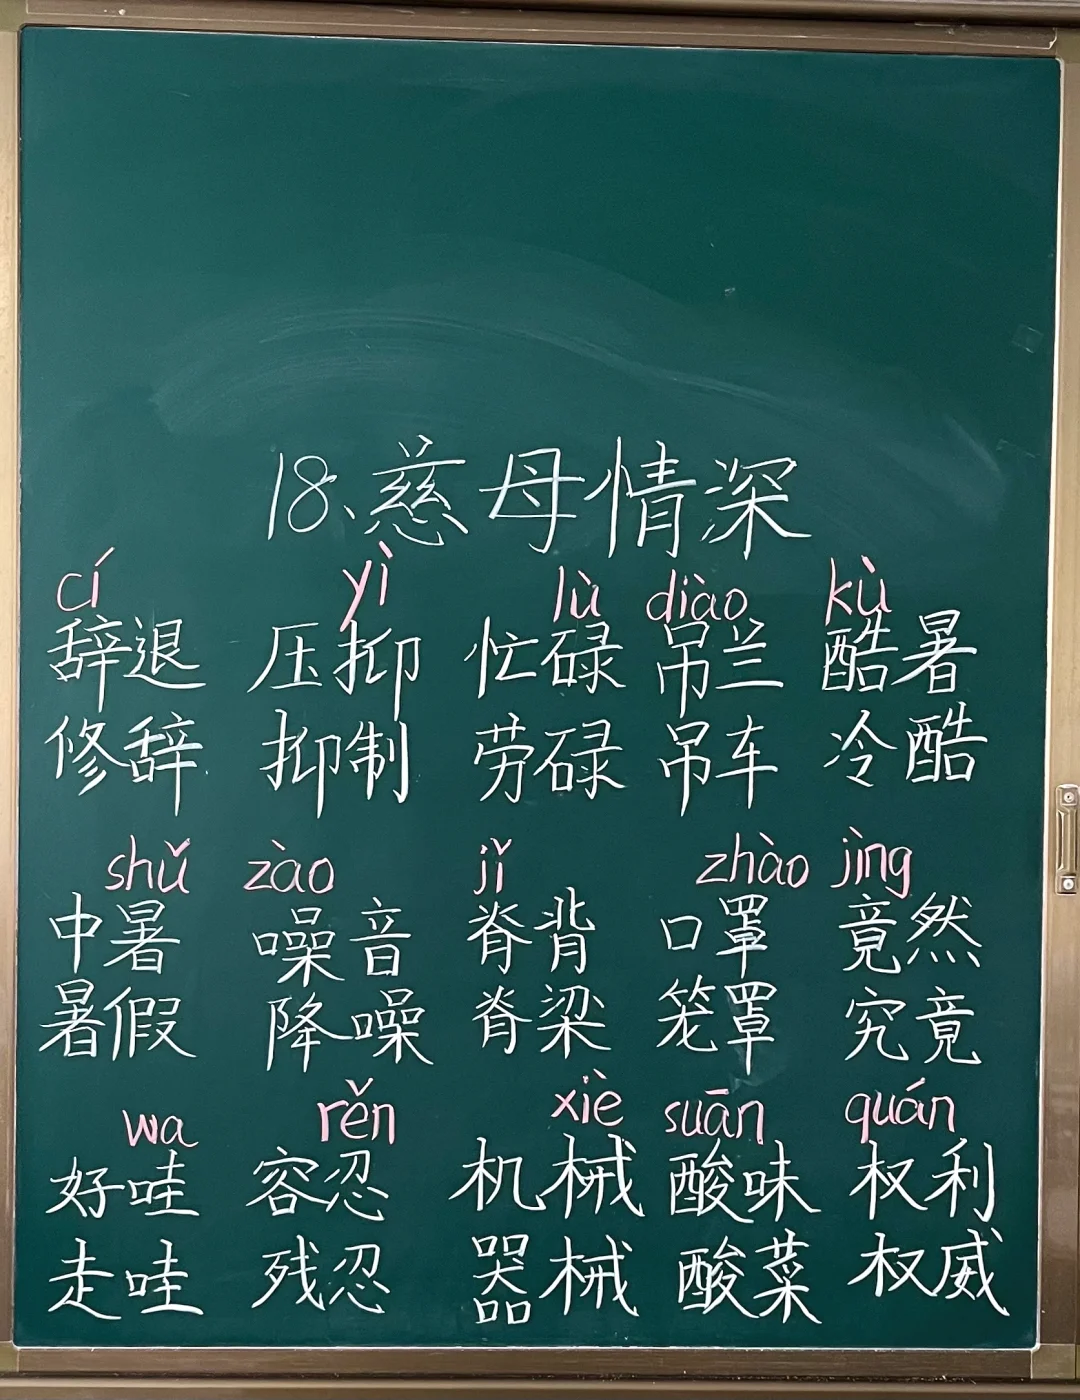 18、慈母情深
cí yì lù diào kù
辞退 压抑 忙碌 吊兰 酷暑
修辞 抑制 劳碌 吊车 冷酷
shǔ zào jǐ zhào jìng
中暑 噪音 脊背 口罩 竟然
暑假 降噪 脊梁 笼罩 究竟
wa rěn xiè suān quán
好哇 容忍 机械 酸味 权利
走哇 残忍 器械 酸菜 权威